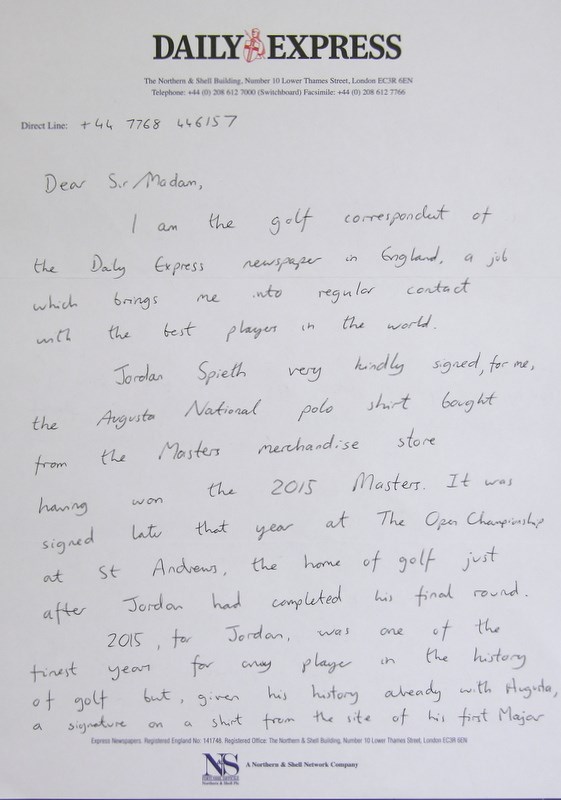 DAILY EXPRESS
The Northern & Shell Building, Number 10 Lower Thames Street, London EC3R 6EN
Telephone: +44 (0) 208 612 7000 (Switchboard) Facsimile: +44 (0) 208 612 7766
Direct Line: +44 7768 446157
Dear Sir/Madam,
I am the golf correspondent of
the Daily Express newspaper in England, a job
which brings me into regular contact
with the best players in the world.
Jordan Spieth very kindly signed, for me,
the Augusta National polo shirt bought
from the Masters merchandise store
having won the 2015 Masters. It was
signed late that year at The Open Championship
at St Andrews, the home of golf just
after Jordan had completed his final round.
2015, for Jordan, was one of the
finest years for any player in the history
of golf but, given his history already with Augusta,
a signature on a shirt from the site of his first Major
Express Newspapers. Registered England No: 141748. Registered Office: The Northern & Shell Building, Number 10 Lower Thames Street, London EC3R 6EN
N&S
Northern & Shell Plc
A Northern & Shell Network Company